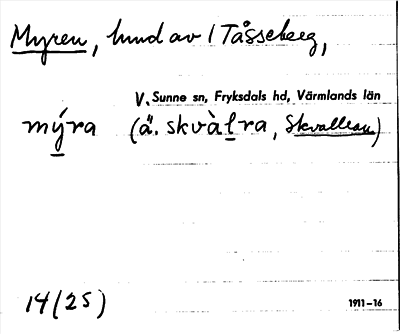 Myren, hund av 1 Tåsseberg,
V. Sunne sn, Fryksdals hd, Värmlands län
mýra (ä. skvàlra, Skvallran)
14(25)
1911-16